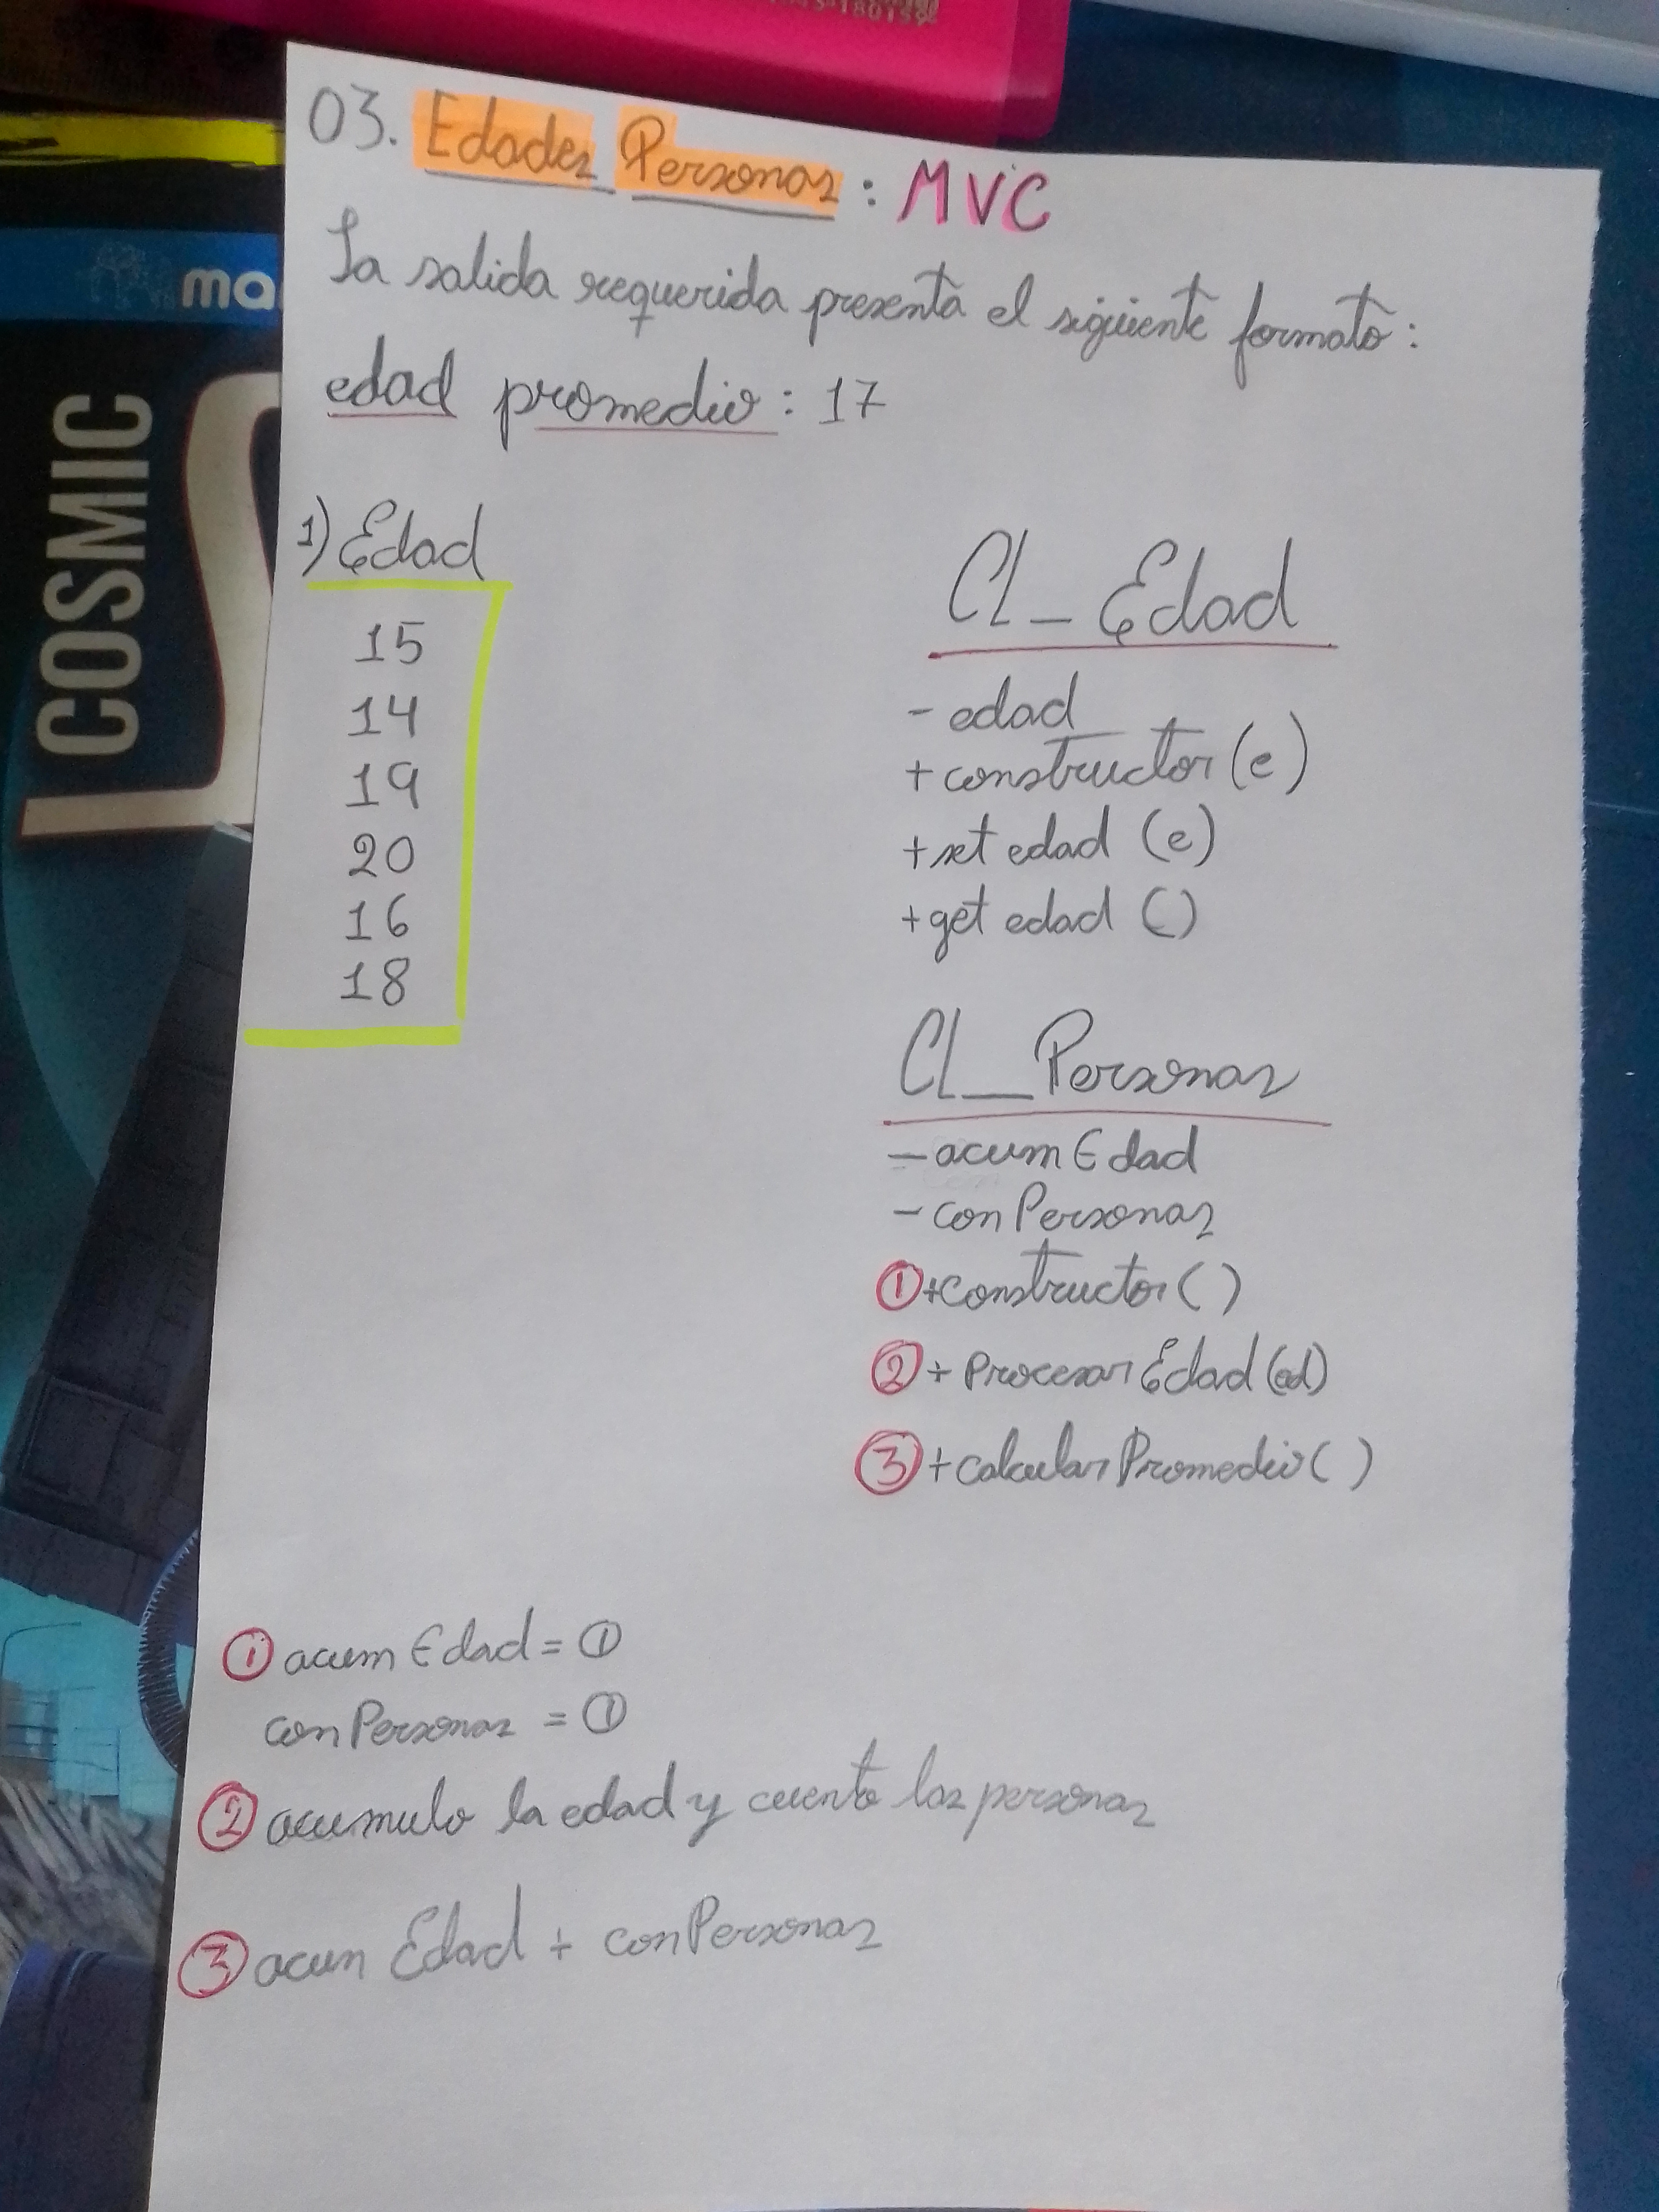 03. Edades Personas: MVC
La salida requerida presenta el siguiente formato:
edad promedio: 17
1) Edad
15
14
19
20
16
18
Cl_Edad
- edad
+ constructor (e)
+ set edad (e)
+ get edad ()
Cl_Personas
- acum Edad
- con Personas
① + Constructor ()
② + Procesar Edad (ed)
③ + calcular Promedio ()
① acum Edad = ①
con Personas = ①
② acumulo la edad y cuento las personas
③ acun Edad ÷ con Personas
COSMIC
ma